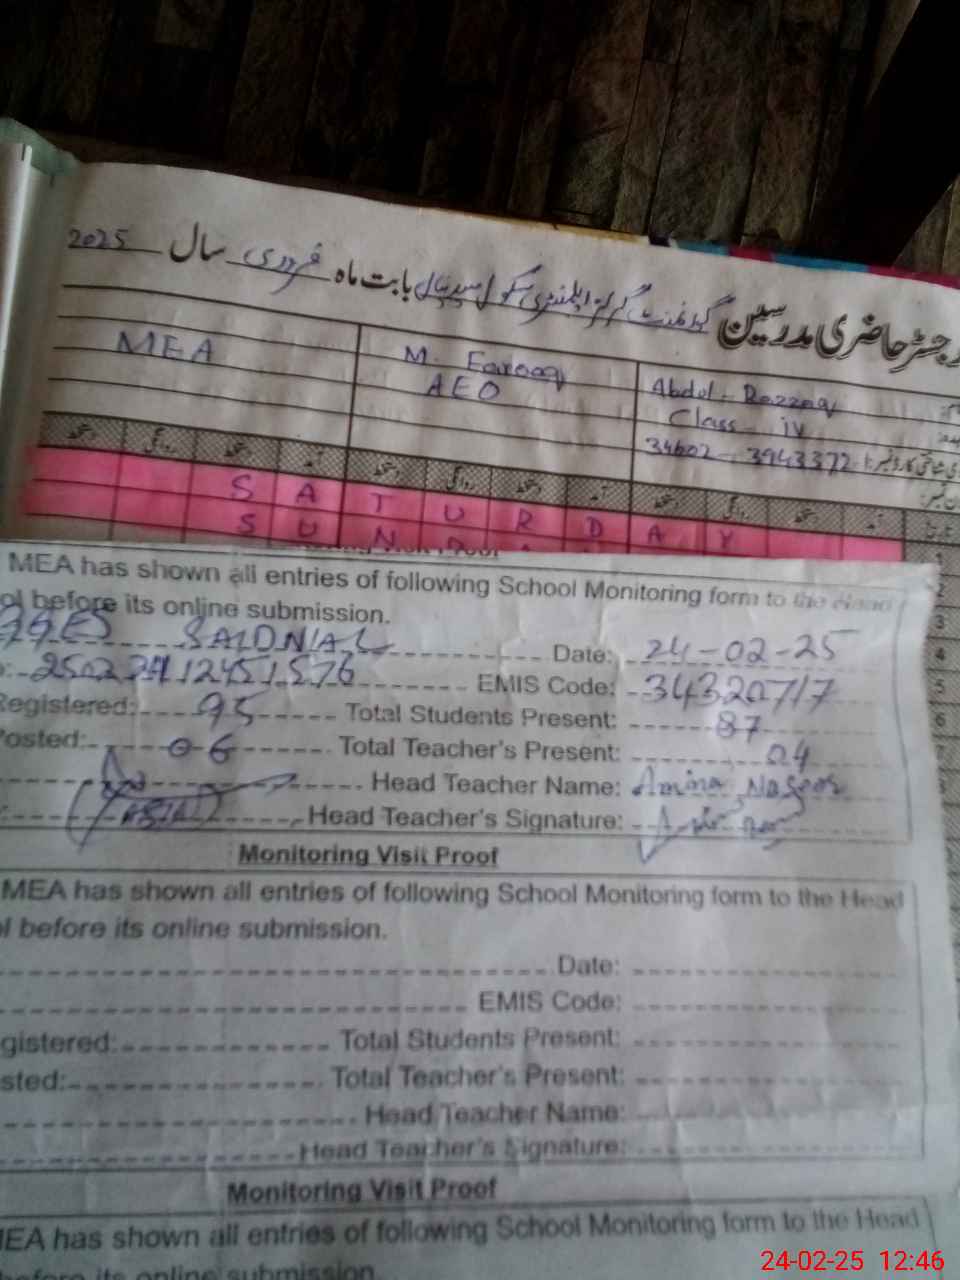 رجسٹر حاضری مدرسین گورنمنٹ گرلز ایلمنٹری سکول سیدنیال بابت ماہ فروری سال 2025
MEA M. Farooq Abdul Razzaq
AEO Class iv
34602-3943372-1
دستخط روانگی دستخط آمد دستخط روانگی دستخط آمد دستخط روانگی دستخط آمد
S A T U R D A Y 1
S U N 2
MEA has shown all entries of following School Monitoring form to the Head
ol before its online submission.
GGES SAIDNIAL Date: 24-02-25
Code: EMIS Code: 34320717
Registered: 95 Total Students Present: 87
Posted: 06 Total Teacher's Present: 04
Head Teacher Name: Amina
Head Teacher's Signature:
3
4
5
6
7
Monitoring Visit Proof
MEA has shown all entries of following School Monitoring form to the Head
ol before its online submission.
Date:
EMIS Code:
gistered: Total Students Present:
sted: Total Teacher's Present:
Head Teacher Name:
Head Teacher's Signature:
Monitoring Visit Proof
MEA has shown all entries of following School Monitoring form to the Head
before its online submission.
24-02-25 12:46